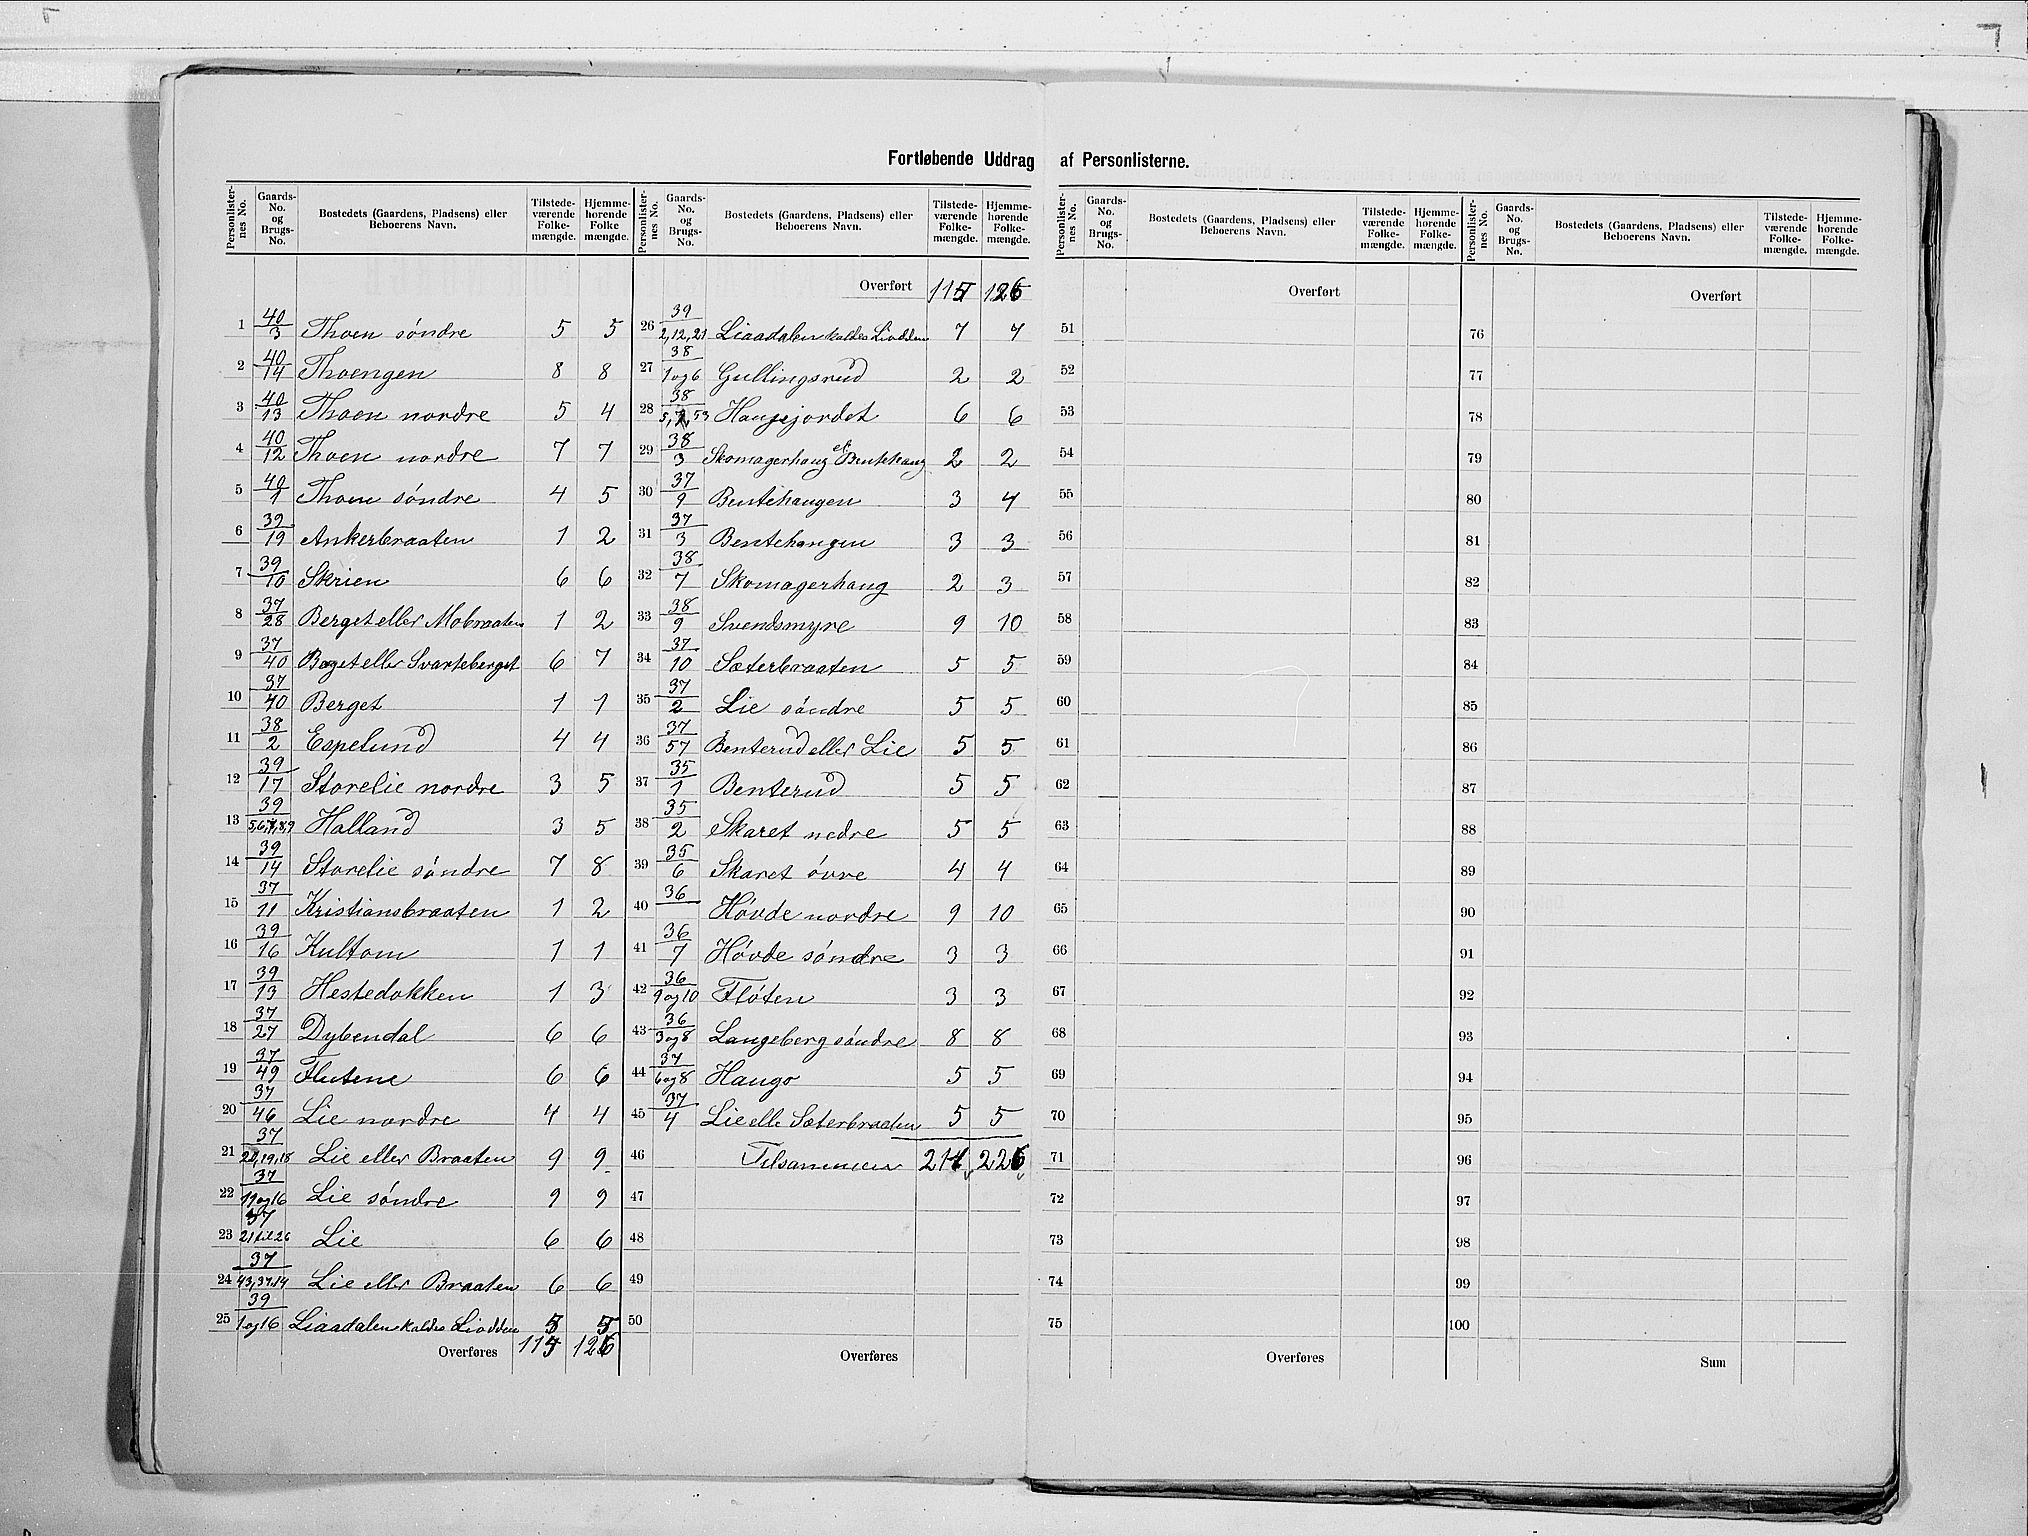 Fortløbende Uddrag af Personlisterne.
Personlister-nes No. Gaards-No. og Brugs-No. Bostedets (Gaardens, Pladsens) eller Beboerens Navn. Tilstede-værende Folke-mængde. Hjemme-hørende Folke mængde.
1 40/3 Thoen söndre 5 5
2 40/14 Thoengen 8 8
3 40/13 Thoen nordre 5 4
4 40/12 Thoen nordre 7 7
5 40/1 Thoen söndre 4 5
6 39/19 Ankerbraaten 1 2
7 39/10 Skrien 6 6
8 37/28 Berget eller Mobraaten 1 2
9 37/40 Baget eller Svarteberget 6 7
10 37/40 Berget 1 1
11 38/2 Espelund 4 4
12 39/17 Storelie nordre 3 5
13 39/5,6,7,8,9 Holland 3 5
14 39/14 Storelie söndre 7 8
15 37/11 Kristiansbraaten 1 2
16 39/16 Kultom 1 1
17 39/13 Hestedokken 1 3
18 37/27 Dybendal 6 6
19 37/49 Flutene 6 6
20 37/46 Lie nordre 4 4
21 37/20,19,18 Lie eller Braaten 9 9
22 37/19og16 Lie söndre 9 9
23 37/21til26 Lie 6 6
24 37/43,37.14 Lie eller Braaten 6 6
25 39/1og16 Liaadalen kaldes Liodden 5 5
Overføres 115 126
Personlister-nes No. Gaards-No. og Brugs-No. Bostedets (Gaardens, Pladsens) eller Beboerens Navn. Tilstede-værende Folke-mængde. Hjemme-hørende Folke-mængde.
Overført 115 126
26 39/2,12,21 Liaadalen kaldes Liodden 7 7
27 38/1og6 Gullingsrud 2 2
28 38/5, 53 Haugejordet 6 6
29 38/3 Skomagerhaug el. Bentehaug 2 2
30 37/9 Bentehaugen 3 4
31 37/3 Bentehangen 3 3
32 38/7 Skomagerhaug 2 3
33 38/9 Svendsmyre 9 10
34 37/10 Sæterbraaten 5 5
35 37/2 Lie söndre 5 5
36 37/57 Benterud eller Lie 5 5
37 35/1 Benterud 5 5
38 35/2 Skaret nedre 5 5
39 35/6 Skaret övre 4 4
40 36 Hövde nordre 9 10
41 36/7 Hövde söndre 3 3
42 36/9og10 Flöten 3 3
43 36/3og8 Langeberg söndre 8 8
44 37/6og8 Haugo 5 5
45 37/4 Lie elle Sæterbraaten 5 5
46 Tilsammen 211 226
47
48
49
50
Overføres
Personlister-nes No. Gaards-No. og Brugs-No. Bostedets (Gaardens, Pladsens) eller Beboerens Navn. Tilstede-værende Folke-mængde. Hjemme-hørende Folke-mængde.
Overført
51
52
53
54
55
56
57
58
59
60
61
62
63
64
65
66
67
68
69
70
71
72
73
74
75
Overføres
Personlister-nes No. Gaards-No. og Brugs-No. Bostedets (Gaardens, Pladsens) eller Beboerens Navn. Tilstede-værende Folke-mængde. Hjemme-hørende Folke-mængde.
Overført
76
77
78
79
80
81
82
83
84
85
86
87
88
89
90
91
92
93
94
95
96
97
98
99
100
Sum